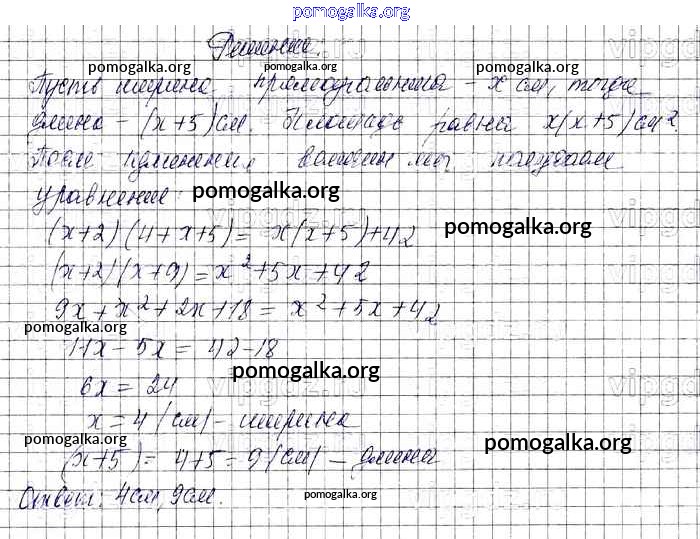 pomogalka.org
Решение.
pomogalka.org pomogalka.org pomogalka.org
Пусть ширина прямоугольника - x см, тогда
длина - (x+5) см. Площадь равна x(x+5) см².
После изменения величин мы получаем
уравнение:
pomogalka.org
pomogalka.org
(x+2)(4+x+5) = x(x+5)+42
(x+2)(x+9) = x²+5x+42
9x+x²+2x+18 = x²+5x+42
pomogalka.org
11x-5x = 42-18
pomogalka.org
6x = 24
x = 4 (см) - ширина
pomogalka.org pomogalka.org
pomogalka.org
(x+5) = 4+5 = 9 (см) - длина
Ответ: 4см, 9см.
pomogalka.org